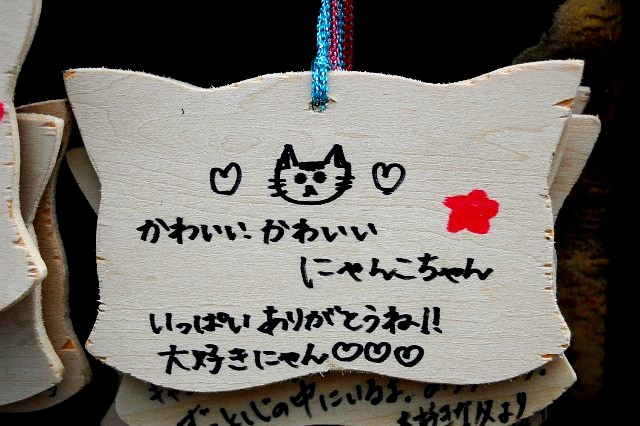 かわいい かわいい
にゃんこちゃん
いっぱい ありがとうね!!
大好きにゃん♡♡♡
ずっと心の中にいるよ。
より